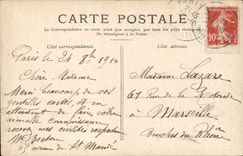 CARTE POSTALE
La Correspondance au recto n'est pas acceptée par tous les pays étrangers
(Se renseigner à la Poste)
Côté correspondance.
Côté adresse.
Paris le 24 8bre 1910
Chère Madame
Merci beaucoup de vos
gentilles cartes et en
attendant de faire votre
connaissance
recevez mes amitiés
Madame Lazare
67 Rue de la
à Marseille
Bouches du Rhône
10